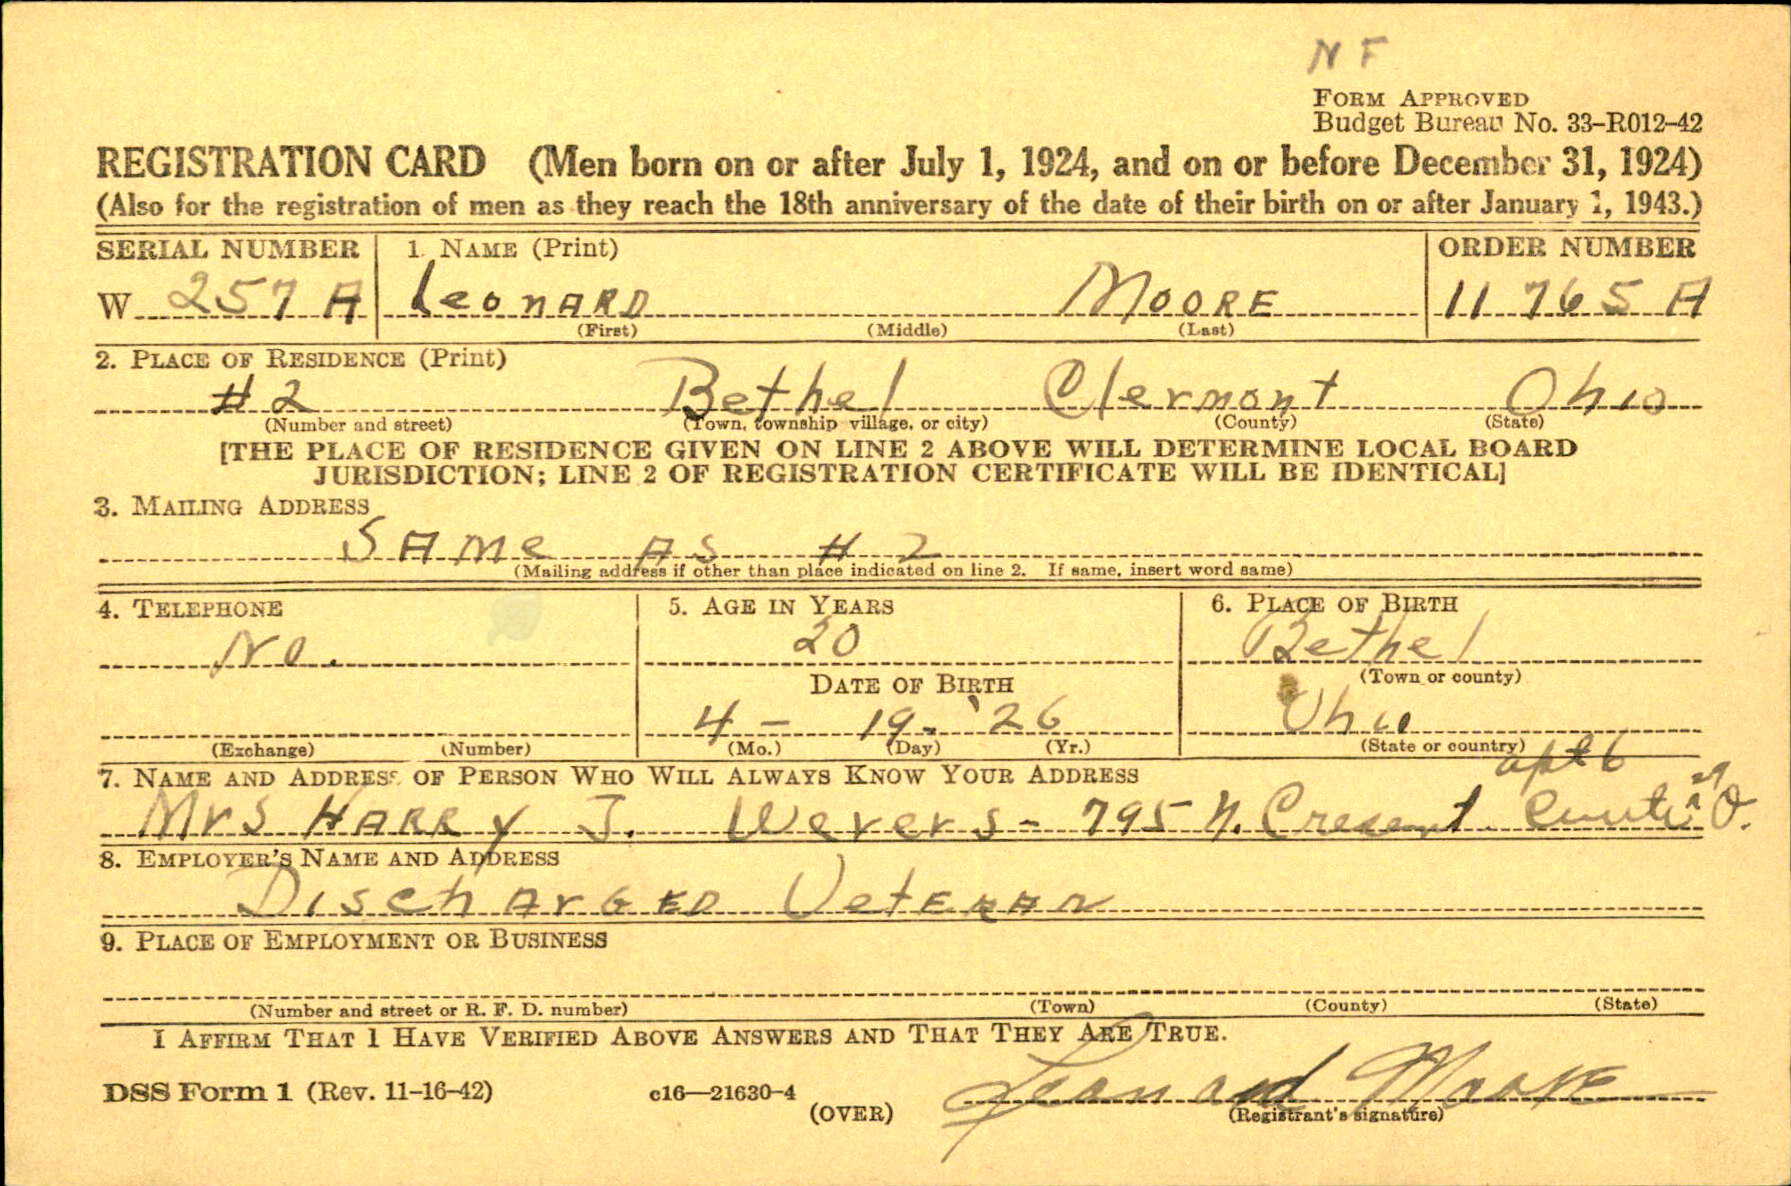 N F
FORM APPROVED
Budget Bureau No. 33-R012-42
REGISTRATION CARD (Men born on or after July 1, 1924, and on or before December 31, 1924)
(Also for the registration of men as they reach the 18th anniversary of the date of their birth on or after January 1, 1943.)
SERIAL NUMBER 1. NAME (Print) ORDER NUMBER
W 257 A Leonard Moore 11765 A
(First) (Middle) (Last)
2. PLACE OF RESIDENCE (Print)
#2 Bethel Clermont Ohio
(Number and street) (Town, township village, or city) (County) (State)
[THE PLACE OF RESIDENCE GIVEN ON LINE 2 ABOVE WILL DETERMINE LOCAL BOARD
JURISDICTION; LINE 2 OF REGISTRATION CERTIFICATE WILL BE IDENTICAL]
3. MAILING ADDRESS
SAME AS # 2
(Mailing address if other than place indicated on line 2. If same, insert word same)
4. TELEPHONE 5. AGE IN YEARS 6. PLACE OF BIRTH
No. 20 Bethel
(Town or county)
DATE OF BIRTH
4 - 19 - '26 Ohio
(Exchange) (Number) (Mo.) (Day) (Yr.) (State or country)
apt 6
7. NAME AND ADDRESS OF PERSON WHO WILL ALWAYS KNOW YOUR ADDRESS
Mrs HARRY J. Wevers - 795 N. Cresent O.
8. EMPLOYER'S NAME AND ADDRESS
DischArGED VetERAN
9. PLACE OF EMPLOYMENT OR BUSINESS
(Number and street or R. F. D. number) (Town) (County) (State)
I AFFIRM THAT I HAVE VERIFIED ABOVE ANSWERS AND THAT THEY ARE TRUE.
DSS Form 1 (Rev. 11-16-42) c16—21630-4 (OVER) Leonard Moore
(Registrant's signature)